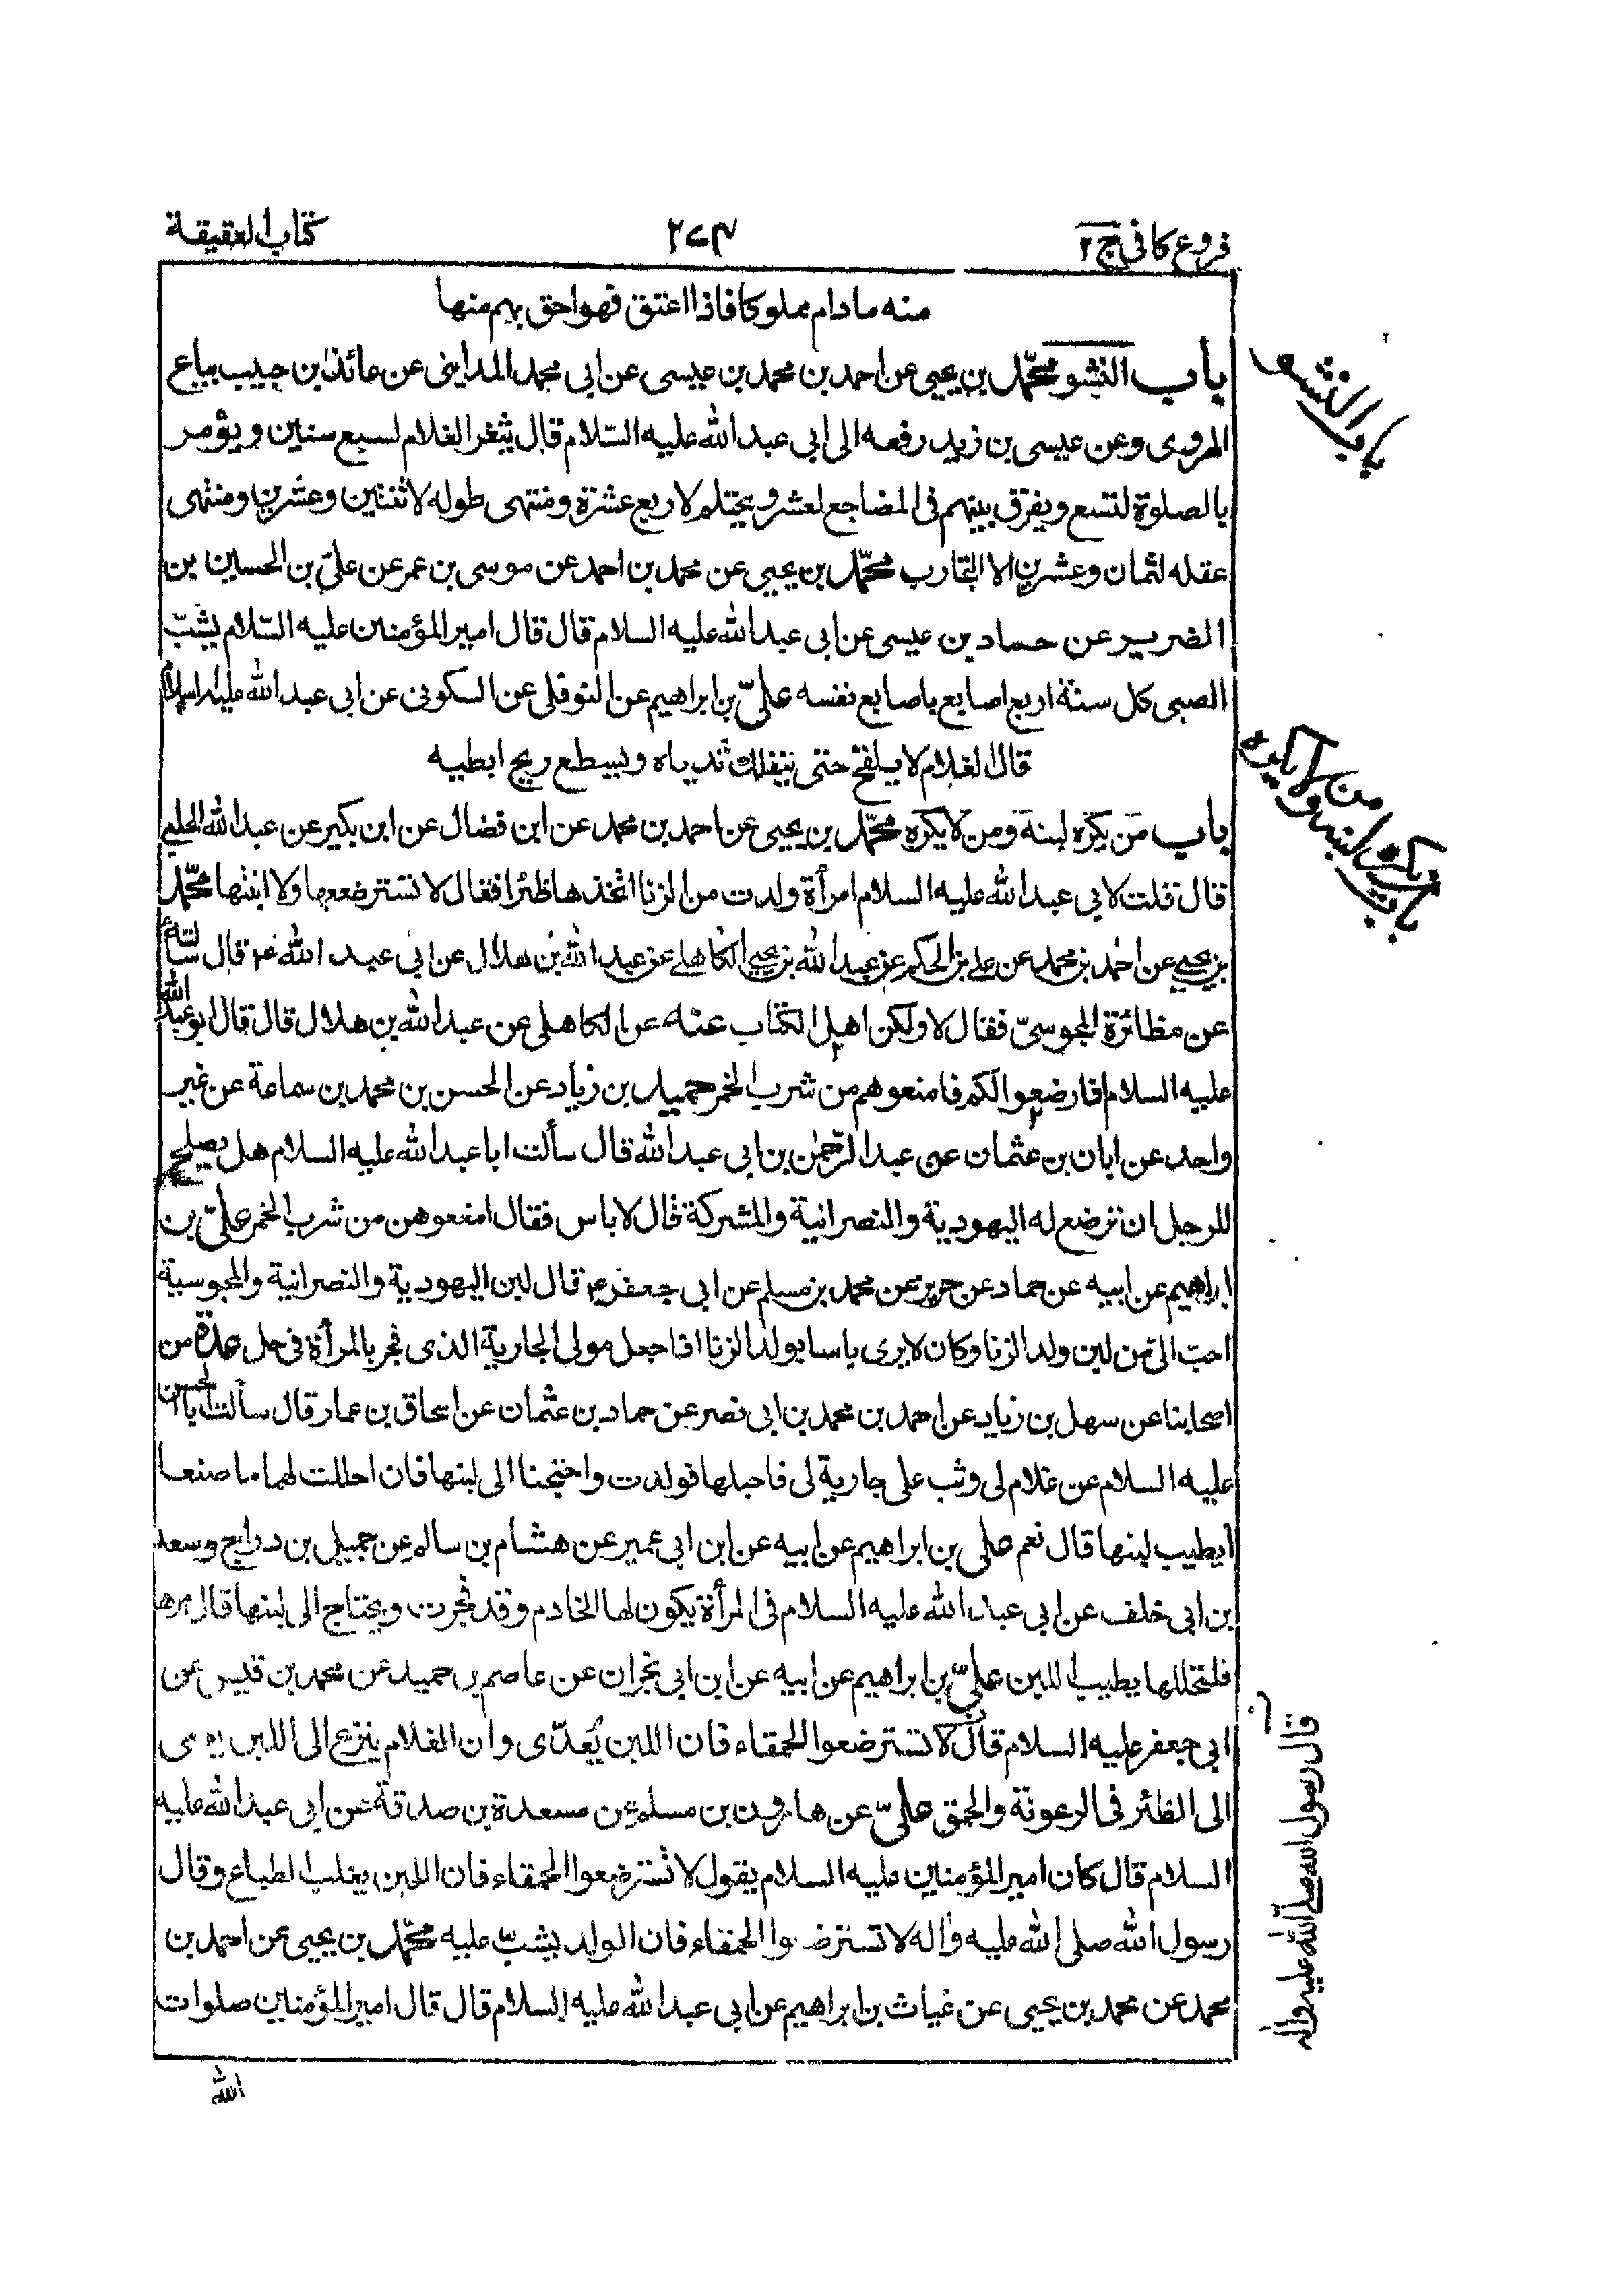 فروع كافى ج ٢
٢٧٤
كتاب العقيقة
منه مادام مملوكا فاذا اعتق فهو احق بهم منها
باب النشو محمّد بن يحيى عن احمد بن محمد بن عيسى عن ابى محمد المداينى عن عائذ بن حبيب بياع
الهروى وعن عيسى بن زيد رفعه الى ابى عبد الله عليه السّلام قال يثغر الغلام لسبع سنين ويؤمر
بالصلوة لتسع ويفرق بينهم فى المضاجع لعشر ويحتلم لاربع عشرة ومنتهى طوله لاثنتين وعشرين ومنتهى
عقله لثمان وعشرين الا التجارب محمّد بن يحيى عن محمد بن احمد عن موسى بن عمر عن علىّ بن الحسين بن
الضرير عن حماد بن عيسى عن ابى عبد الله عليه السلام قال قال امير المؤمنين عليه السّلام يشبّ
الصبى كل سنة اربع اصابع باصابع نفسه علىّ بن ابراهيم عن النوفلى عن السكونى عن ابى عبد الله عليه السلام
قال الغلام لا يلقح حتى يتفلك ثدياه ويسطع ريح ابطيه
باب من يكره لبنه ومن لا يكره محمّد بن يحيى عن احمد بن محمد عن ابن فضال عن ابن بكير عن عبد الله الحلبى
قال قلت لابى عبد الله عليه السلام امرأة ولدت من الزنا اتخذها ظئرا فقال لا تسترضعها ولا ابنتها محمّد
بن يحيى عن احمد بن محمد عن على بن الحكم عن عبد الله بن يحيى الكاهلى عن عبد الله بن هلال عن ابى عبد الله ع قال سألته
عن مظائرة المجوسىّ فقال لا ولكن اهل الكتاب عنه عن الكاهلى عن عبد الله بن هلال قال قال ابو عبد الله
عليه السلام اذا رضعوا لكم فامنعوهم من شرب الخمر حميد بن زياد عن الحسن بن محمد بن سماعة عن غير
واحد عن ابان بن عثمان عن عبد الرّحمن بن ابى عبد الله قال سألت ابا عبد الله عليه السلام هل يصلح
للرجل ان ترضع له اليهودية والنصرانية والمشركة قال لاباس فقال امنعوهن من شرب الخمر علىّ بن
ابراهيم عن ابيه عن حماد عن حريز عن محمد بن مسلم عن ابى جعفر ع قال لبن اليهودية والنصرانية والمجوسية
احبّ الىّ من لبن ولد الزنا وكان لا يرى باسا بولد الزنا اذا جعل مولى الجارية الذى فجر بالمرأة فى حل عدّة من
اصحابنا عن سهل بن زياد عن احمد بن محمد بن ابى نصر عن حماد بن عثمان عن اسحاق بن عمار قال سالت ابا الحسن
عليه السلام عن غلام لى وثب على جارية لى فاحبلها فولدت واحتجنا الى لبنها فان احللت لهما ما صنعا
ايطيب لبنها قال نعم على بن ابراهيم عن ابيه عن ابن ابى عمير عن هشام بن سالم عن جميل بن دراج وسعد
بن ابى خلف عن ابى عبد الله عليه السلام فى المرأة يكون لها الخادم وقد فجرت ويحتاج الى لبنها قال مرها
فلتحللها يطيب اللبن علىّ بن ابراهيم عن ابيه عن ابن ابى نجران عن عاصم بن حميد عن محمد بن قيس عن
ابى جعفر عليه السلام قال لا تسترضعوا الحمقاء فان اللبن يُعدّى وان الغلام ينزع الى اللبن يعنى
الى الظئر فى الرعونة والحمق علىّ عن هارون بن مسلم عن مسعدة بن صدقة عن ابى عبد الله عليه
السلام قال كان امير المؤمنين عليه السلام يقول لا تسترضعوا الحمقاء فان اللبن يغلب الطباع وقال
رسول الله صلى الله عليه وآله لا تسترضعوا الحمقاء فان الولد يشبّ عليه محمّد بن يحيى عن احمد بن
محمد عن محمد بن يحيى عن غياث بن ابراهيم عن ابى عبد الله عليه السلام قال قال امير المؤمنين صلوات
الله
باب النشو
باب من يكره لبنه ومن لا يكره
قال رسول الله صلى الله عليه وآله